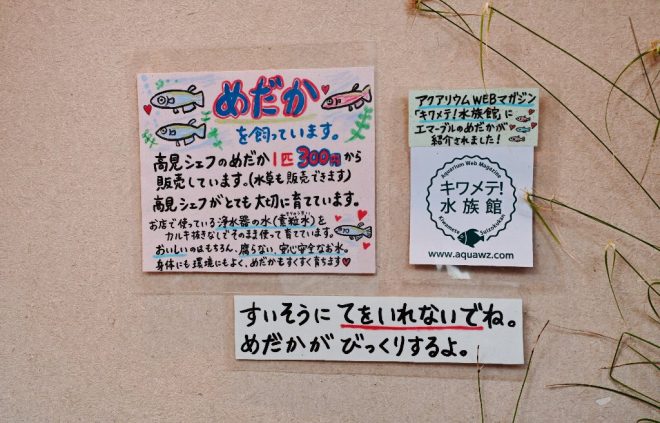 めだか
を飼っています。
高見シェフのめだか1匹300円から
販売しています。(水草も販売できます)
高見シェフがとても大切に育てています。
お店で使っている浄水器の水(素粒水)を
カルキ抜きなしでそのまま使って育てています。
おいしいのはもちろん、腐らない、安心安全なお水。
身体にも環境にもよく、めだかもすくすく育ちます
アクアリウムWEBマガジン
「キワメテ!水族館」に
エマーブルのめだかが
紹介されました!
Aquarium Web Magazine
キワメテ!
水族館
Kiwamete Suizokukan
www.aquawz.com
すいそうに てをいれないでね。
めだかが びっくりするよ。